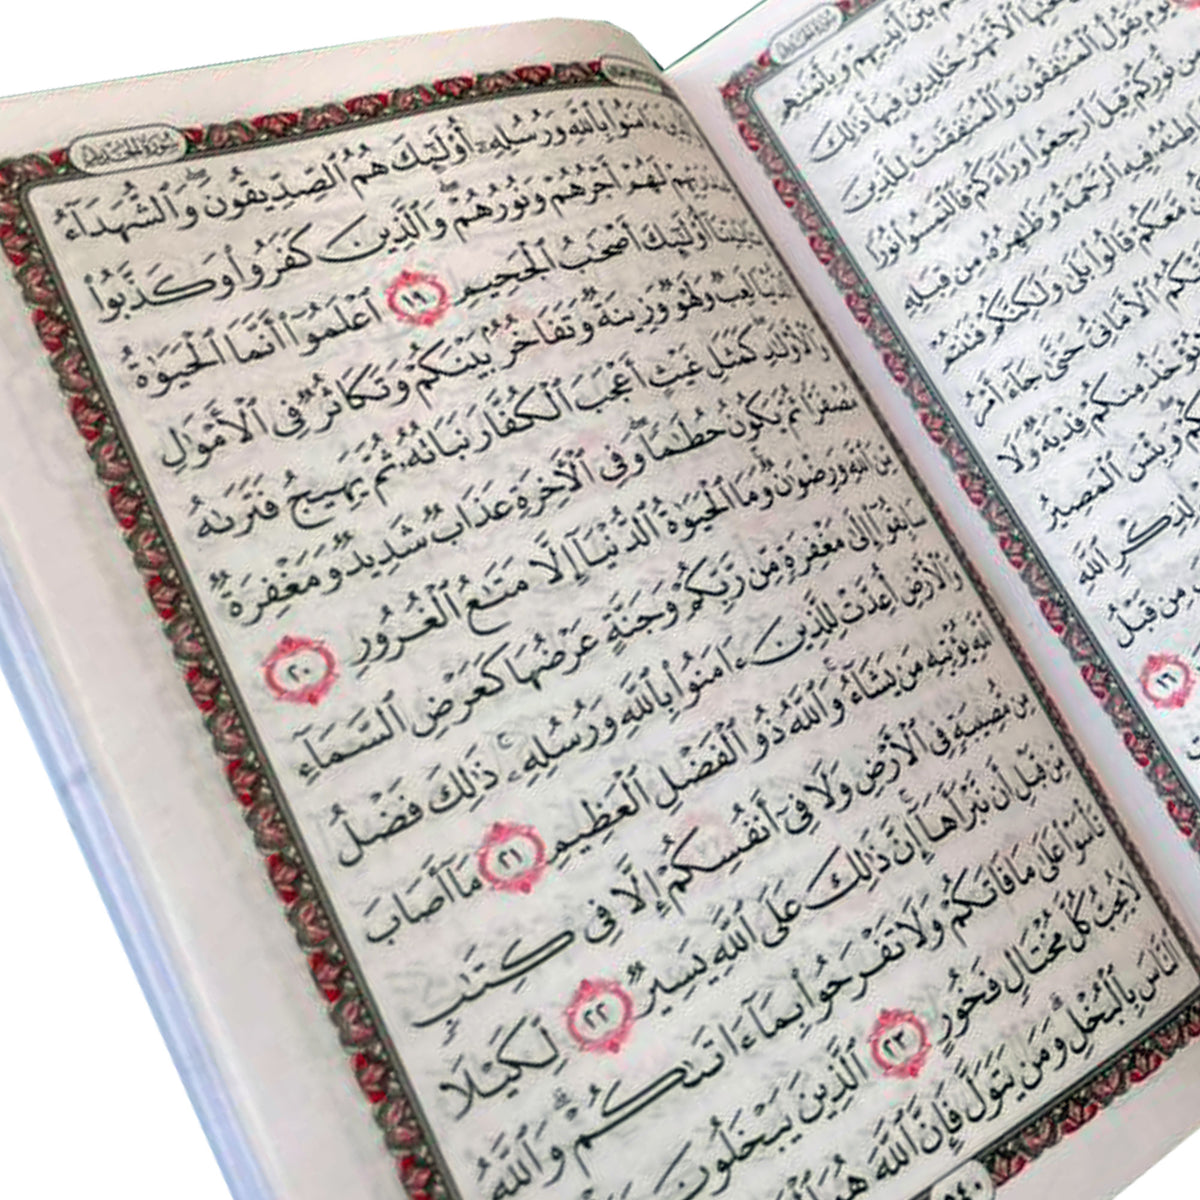 سُورَةُ الحَدِيدِ
بَيْنَ أَيْدِيهِمْ وَبِأَيْمَٰنِهِم
ٱلْأَنْهَٰرُ خَٰلِدِينَ فِيهَا ذَٰلِكَ
يَقُولُ ٱلْمُنَٰفِقُونَ وَٱلْمُنَٰفِقَٰتُ لِلَّذِينَ
نُّورِكُمْ قِيلَ ٱرْجِعُوا۟ وَرَآءَكُمْ فَٱلْتَمِسُوا۟ نُورًا
فِيهِ ٱلرَّحْمَةُ وَظَٰهِرُهُۥ مِن قِبَلِهِ
مَّعَكُمْ قَالُوا۟ بَلَىٰ وَلَٰكِنَّكُمْ فَتَنتُمْ
ٱلْأَمَانِىُّ حَتَّىٰ جَآءَ أَمْرُ
يُؤْخَذُ مِنكُمْ فِدْيَةٌ وَلَا
وَبِئْسَ ٱلْمَصِيرُ
لِذِكْرِ ٱللَّهِ
مِن قَبْلُ
١٦
سُورَةُ الحَدِيدِ
ءَامَنُوا۟ بِٱللَّهِ وَرُسُلِهِۦٓ أُو۟لَٰٓئِكَ هُمُ ٱلصِّدِّيقُونَ ۖ وَٱلشُّهَدَآءُ
رَبِّهِمْ لَهُمْ أَجْرُهُمْ وَنُورُهُمْ ۖ وَٱلَّذِينَ كَفَرُوا۟ وَكَذَّبُوا۟
بِـَٔايَٰتِنَآ أُو۟لَٰٓئِكَ أَصْحَٰبُ ٱلْجَحِيمِ ١٩ ٱعْلَمُوٓا۟ أَنَّمَا ٱلْحَيَوٰةُ
ٱلدُّنْيَا لَعِبٌ وَلَهْوٌ وَزِينَةٌ وَتَفَاخُرٌۢ بَيْنَكُمْ وَتَكَاثُرٌ فِى ٱلْأَمْوَٰلِ
وَٱلْأَوْلَٰدِ ۖ كَمَثَلِ غَيْثٍ أَعْجَبَ ٱلْكُفَّارَ نَبَاتُهُۥ ثُمَّ يَهِيجُ فَتَرَىٰهُ
مُصْفَرًّا ثُمَّ يَكُونُ حُطَٰمًا ۖ وَفِى ٱلْءَاخِرَةِ عَذَابٌ شَدِيدٌ وَمَغْفِرَةٌ
مِّنَ ٱللَّهِ وَرِضْوَٰنٌ ۚ وَمَا ٱلْحَيَوٰةُ ٱلدُّنْيَآ إِلَّا مَتَٰعُ ٱلْغُرُورِ ٢٠
سَابِقُوٓا۟ إِلَىٰ مَغْفِرَةٍ مِّن رَّبِّكُمْ وَجَنَّةٍ عَرْضُهَا كَعَرْضِ ٱلسَّمَآءِ
وَٱلْأَرْضِ أُعِدَّتْ لِلَّذِينَ ءَامَنُوا۟ بِٱللَّهِ وَرُسُلِهِۦ ۚ ذَٰلِكَ فَضْلُ
ٱللَّهِ يُؤْتِيهِ مَن يَشَآءُ ۚ وَٱللَّهُ ذُو ٱلْفَضْلِ ٱلْعَظِيمِ ٢١ مَآ أَصَابَ
مِن مُّصِيبَةٍ فِى ٱلْأَرْضِ وَلَا فِىٓ أَنفُسِكُمْ إِلَّا فِى كِتَٰبٍ
مِّن قَبْلِ أَن نَّبْرَأَهَآ ۚ إِنَّ ذَٰلِكَ عَلَى ٱللَّهِ يَسِيرٌ ٢٢ لِّكَيْلَا
تَأْسَوْا۟ عَلَىٰ مَا فَاتَكُمْ وَلَا تَفْرَحُوا۟ بِمَآ ءَاتَىٰكُمْ ۗ وَٱللَّهُ
لَا يُحِبُّ كُلَّ مُخْتَالٍ فَخُورٍ ٢٣ ٱلَّذِينَ يَبْخَلُونَ
ٱلنَّاسَ بِٱلْبُخْلِ ۗ وَمَن يَتَوَلَّ فَإِنَّ ٱللَّهَ هُوَ
٥٤٠